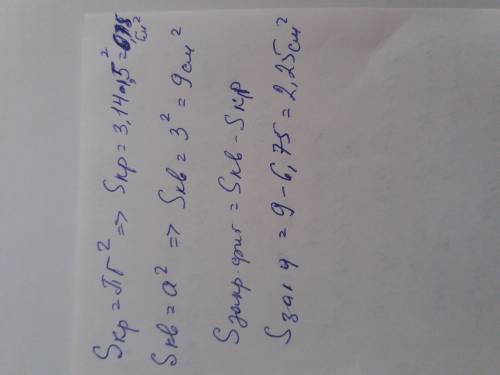 Sкр = πr² => Sкр = 3,14·1,5² = 6,75 см²
Sкв = a² => Sкв = 3² = 9 см²
Sзакр. фиг = Sкв - Sкр
S = 9 - 6,75 = 2,25 см²